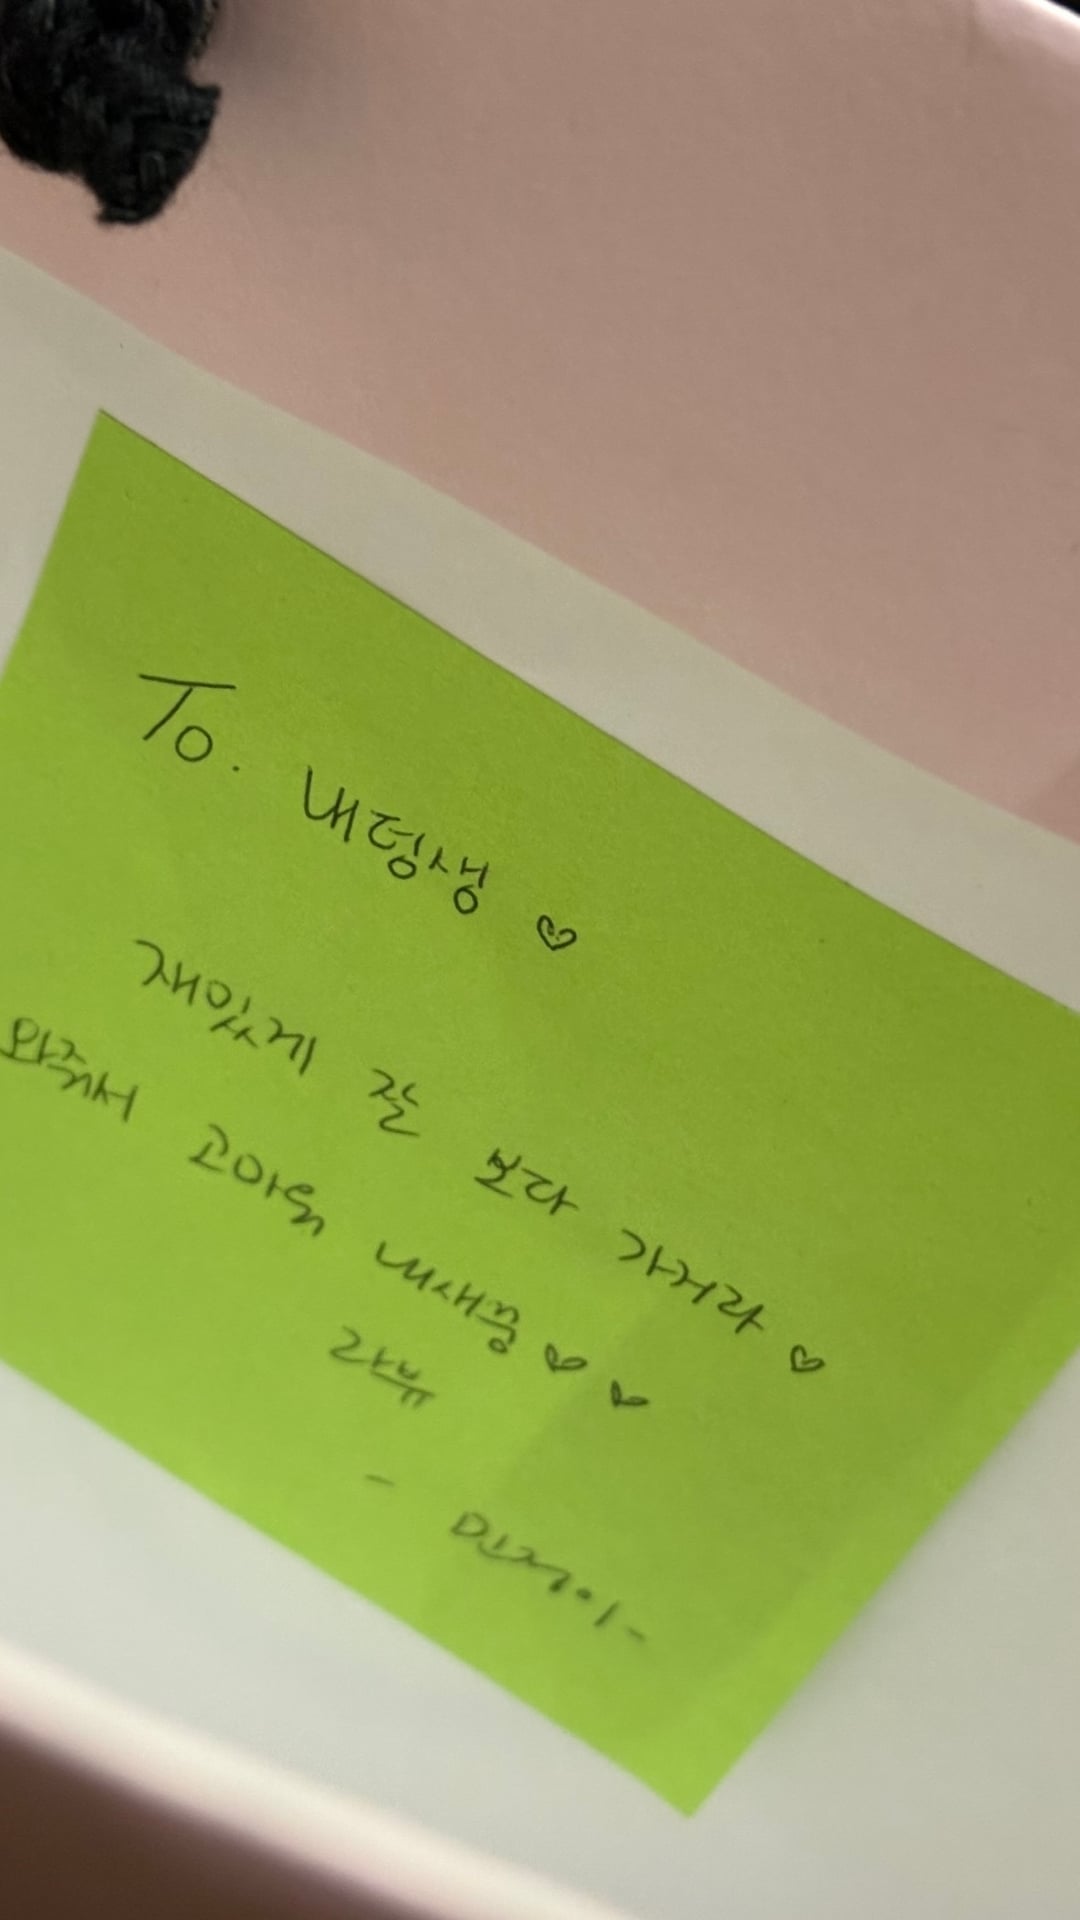 To. 내덩생 ♡
재밌게 잘 보다 가거라 ♡
와줘서 고마워 내새꿍 ♡ ♡
라뷰
- 민정이 -